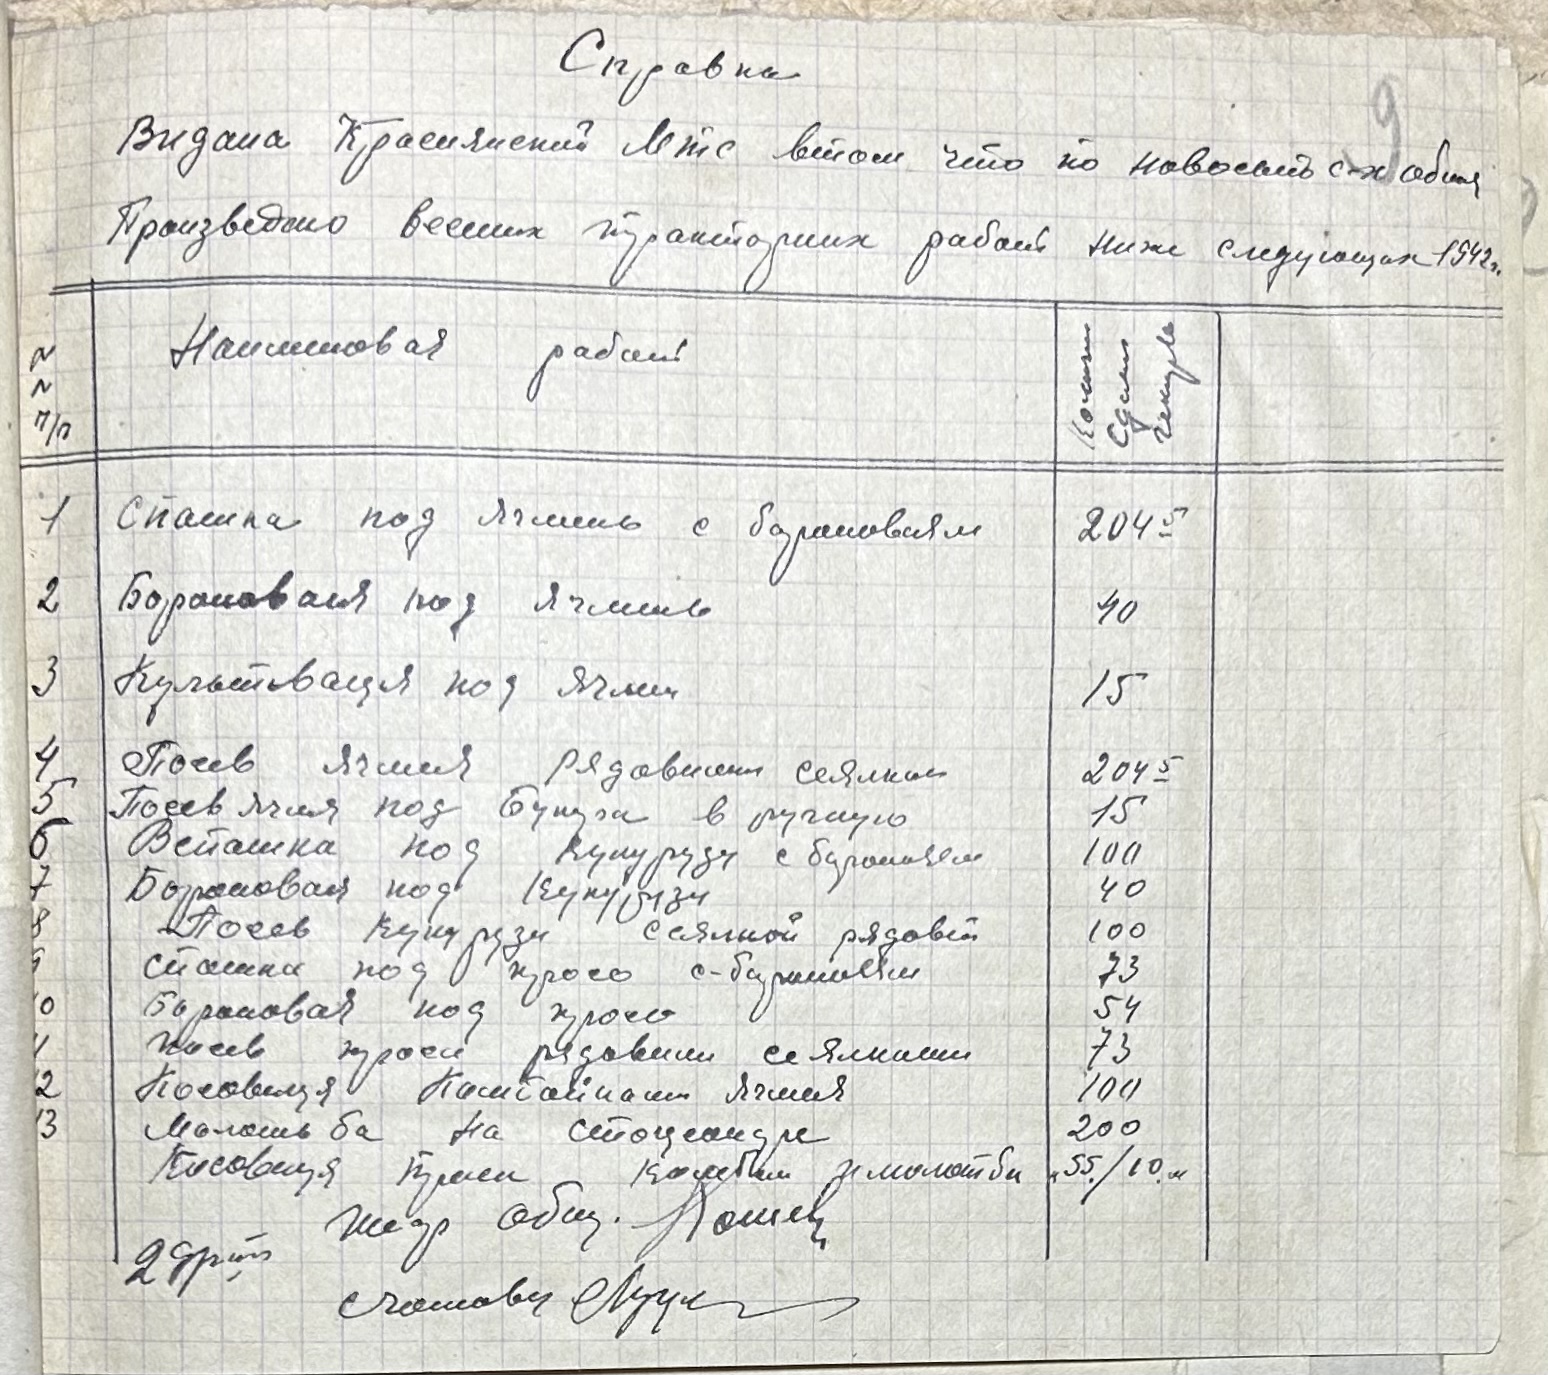 Справка
9
Видана Краснянский Мтс втом что по новосыть с-х общ
Произведено весних тракторних работ ниже следующих 1942г.
N N п/п
Наименовая работ
Количи Сдели гектарь
1 Спашка под ячмень с бароноваям 204 5
2 Бороновая под ячмень 40
3 Культивация под ячмен 15
4 Посев ячменя рядовими сеялками 204 5
5 Посев ячмя под букура в ручную 15
6 Вспашка под кукурузу с баронаям 100
7 Бороновая под кукурузу 40
8 Посев кукурузи сеялкой рядовой 100
9 спашка под просо с-бороноваям 73
10 Бороновая под просо 54
11 посев проси рядовими сеялками 73
12 Косовиця ячменя 100
13 Молотьба на 200
Косовиця проси молотьби "55/10"
общ.
2